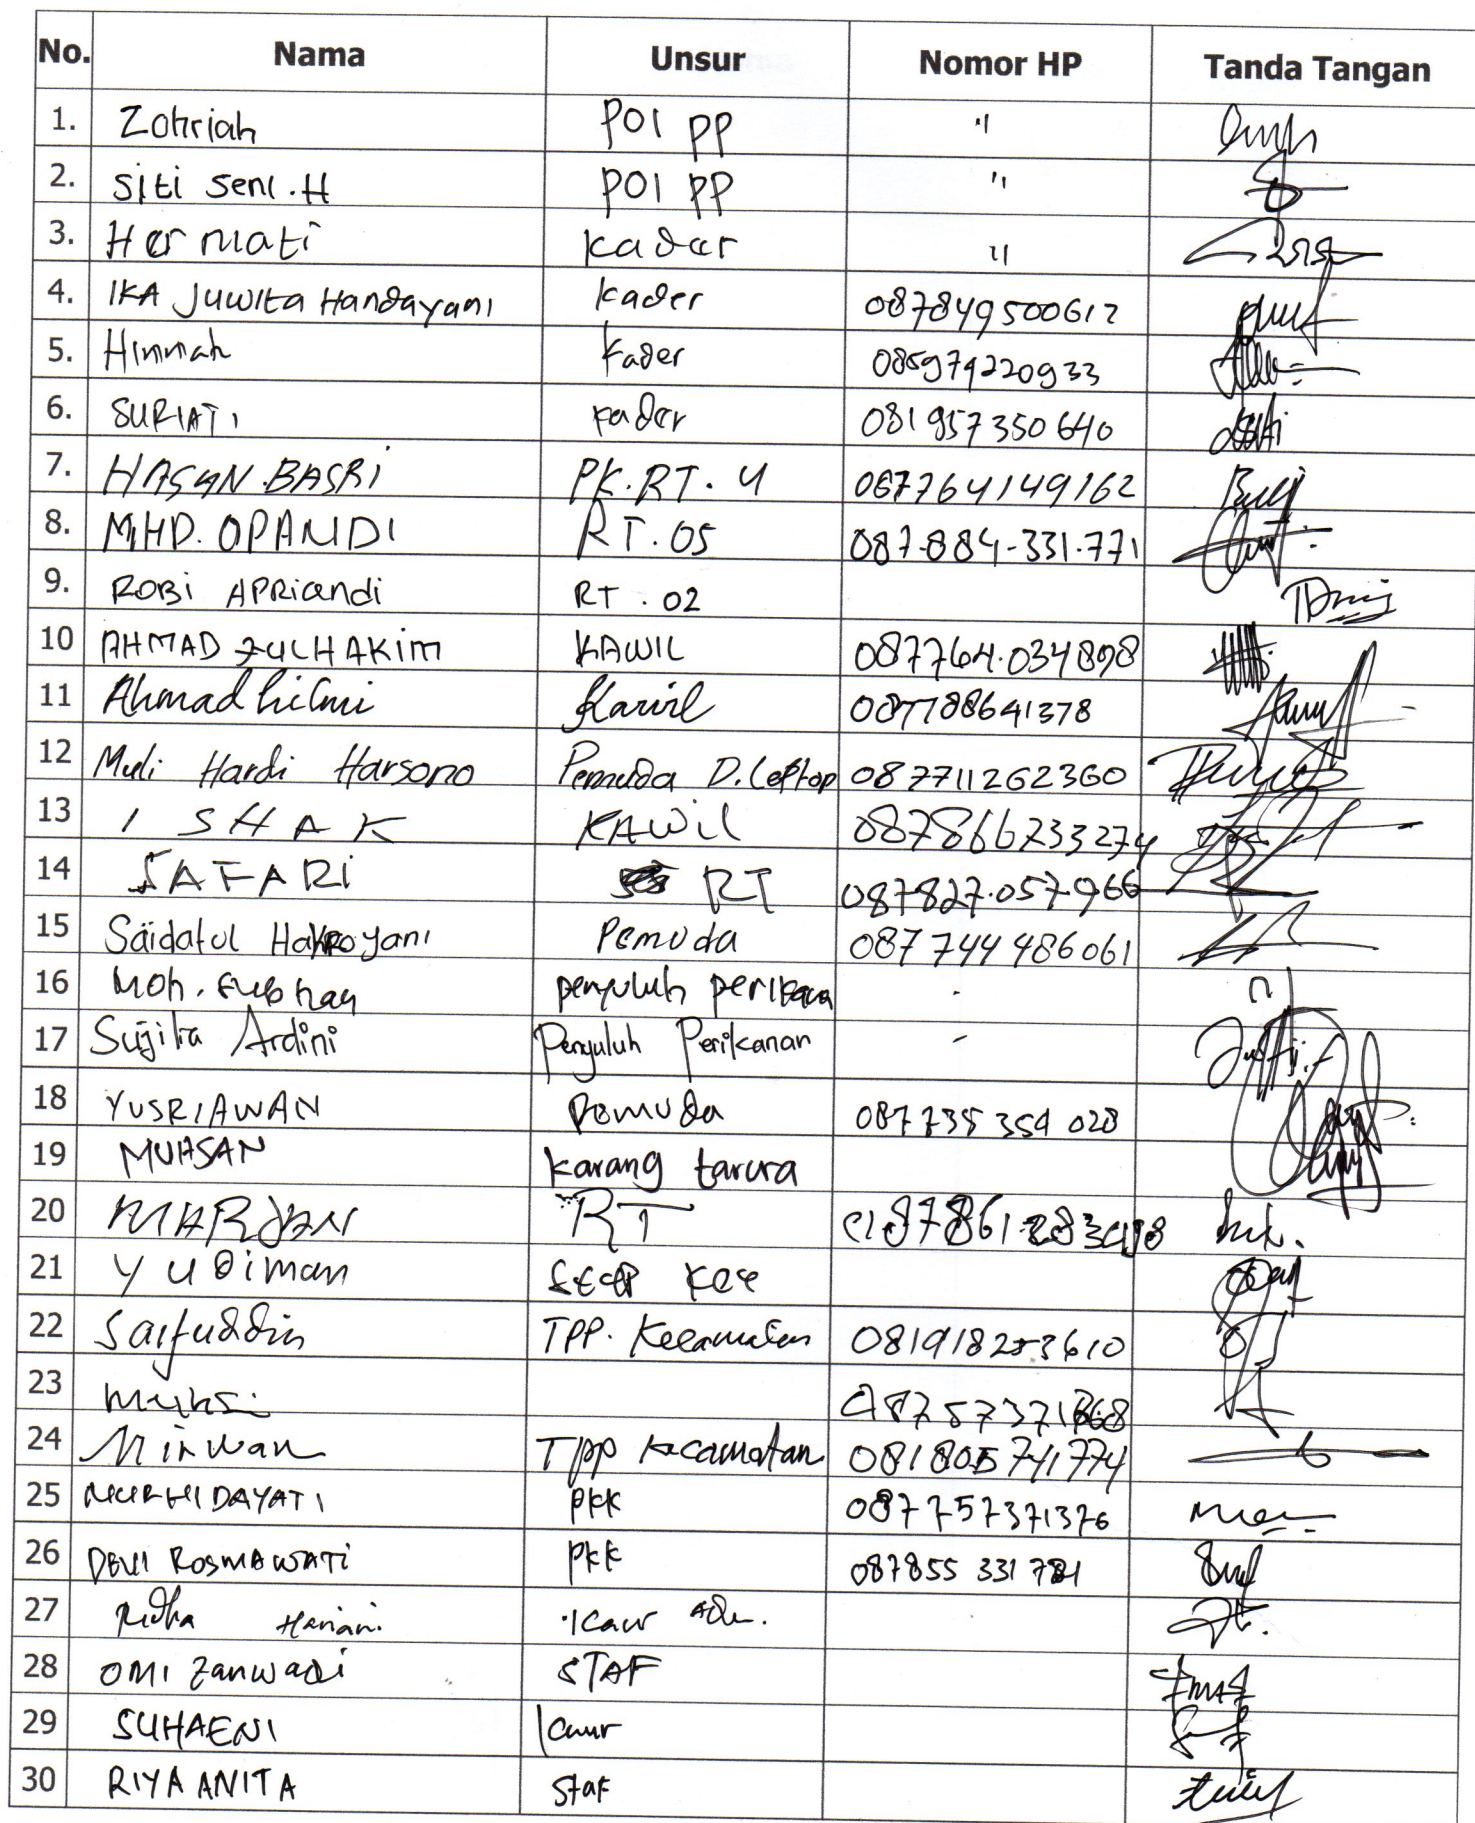 No. Nama Unsur Nomor HP Tanda Tangan
1. Zohriah POl PP "
2. Siti Seni.H POl PP "
3. Hermati kader "
4. IKA Juwita Handayani kader 087849500612
5. Himmah kader 085974220933
6. SURIATI kader 081957350640
7. HASAN.BASRi PK.RT.4 087764149162
8. MHD. OPANDI RT.05 087-884-331.771
9. ROBi APRiandi RT.02
10 AHMAD ZULHAKim KAWIL 087764.034898
11 Ahmad hilmi Kawil 087788641378
12 Muli Hardi Harsono Pemuda D. 087711262360
13 ISHAK KAWiL 087866233274
14 SAFARi RT 087827.057966
15 Saidatul Pemuda 087744486061
16 Moh. Subhan penyuluh -
17 Sujilia Ardini Penyuluh Perikanan -
18 YUSRIAWAN Pemuda 087735 354 028
19 MUHSAN karang taruna
20 MARJAN RT
21 Yudiman
22 Saifuddin TPP. Kecamatan
23
24 Mirwan Tpp Kecamatan
25 NURHIDAYATI PKK 087757371376
26 DEWI ROSMAWATi PKK 087855 331 781
27 Ridha Hariani. Kaur
28 OMI Zanwadi STAF
29 SUHAENI Kaur
30 RIYA ANITA Staf